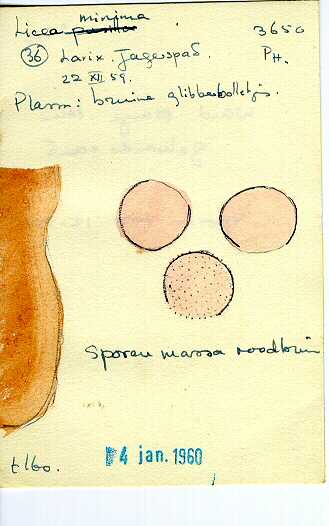 minima
Licea pusilla 3650
36 Larix. Jagerspad. PH.
22 XII 59.
Plasm: bruine glibberbolletjes.
Sporen massa roodbruin
t160.
4 jan. 1960